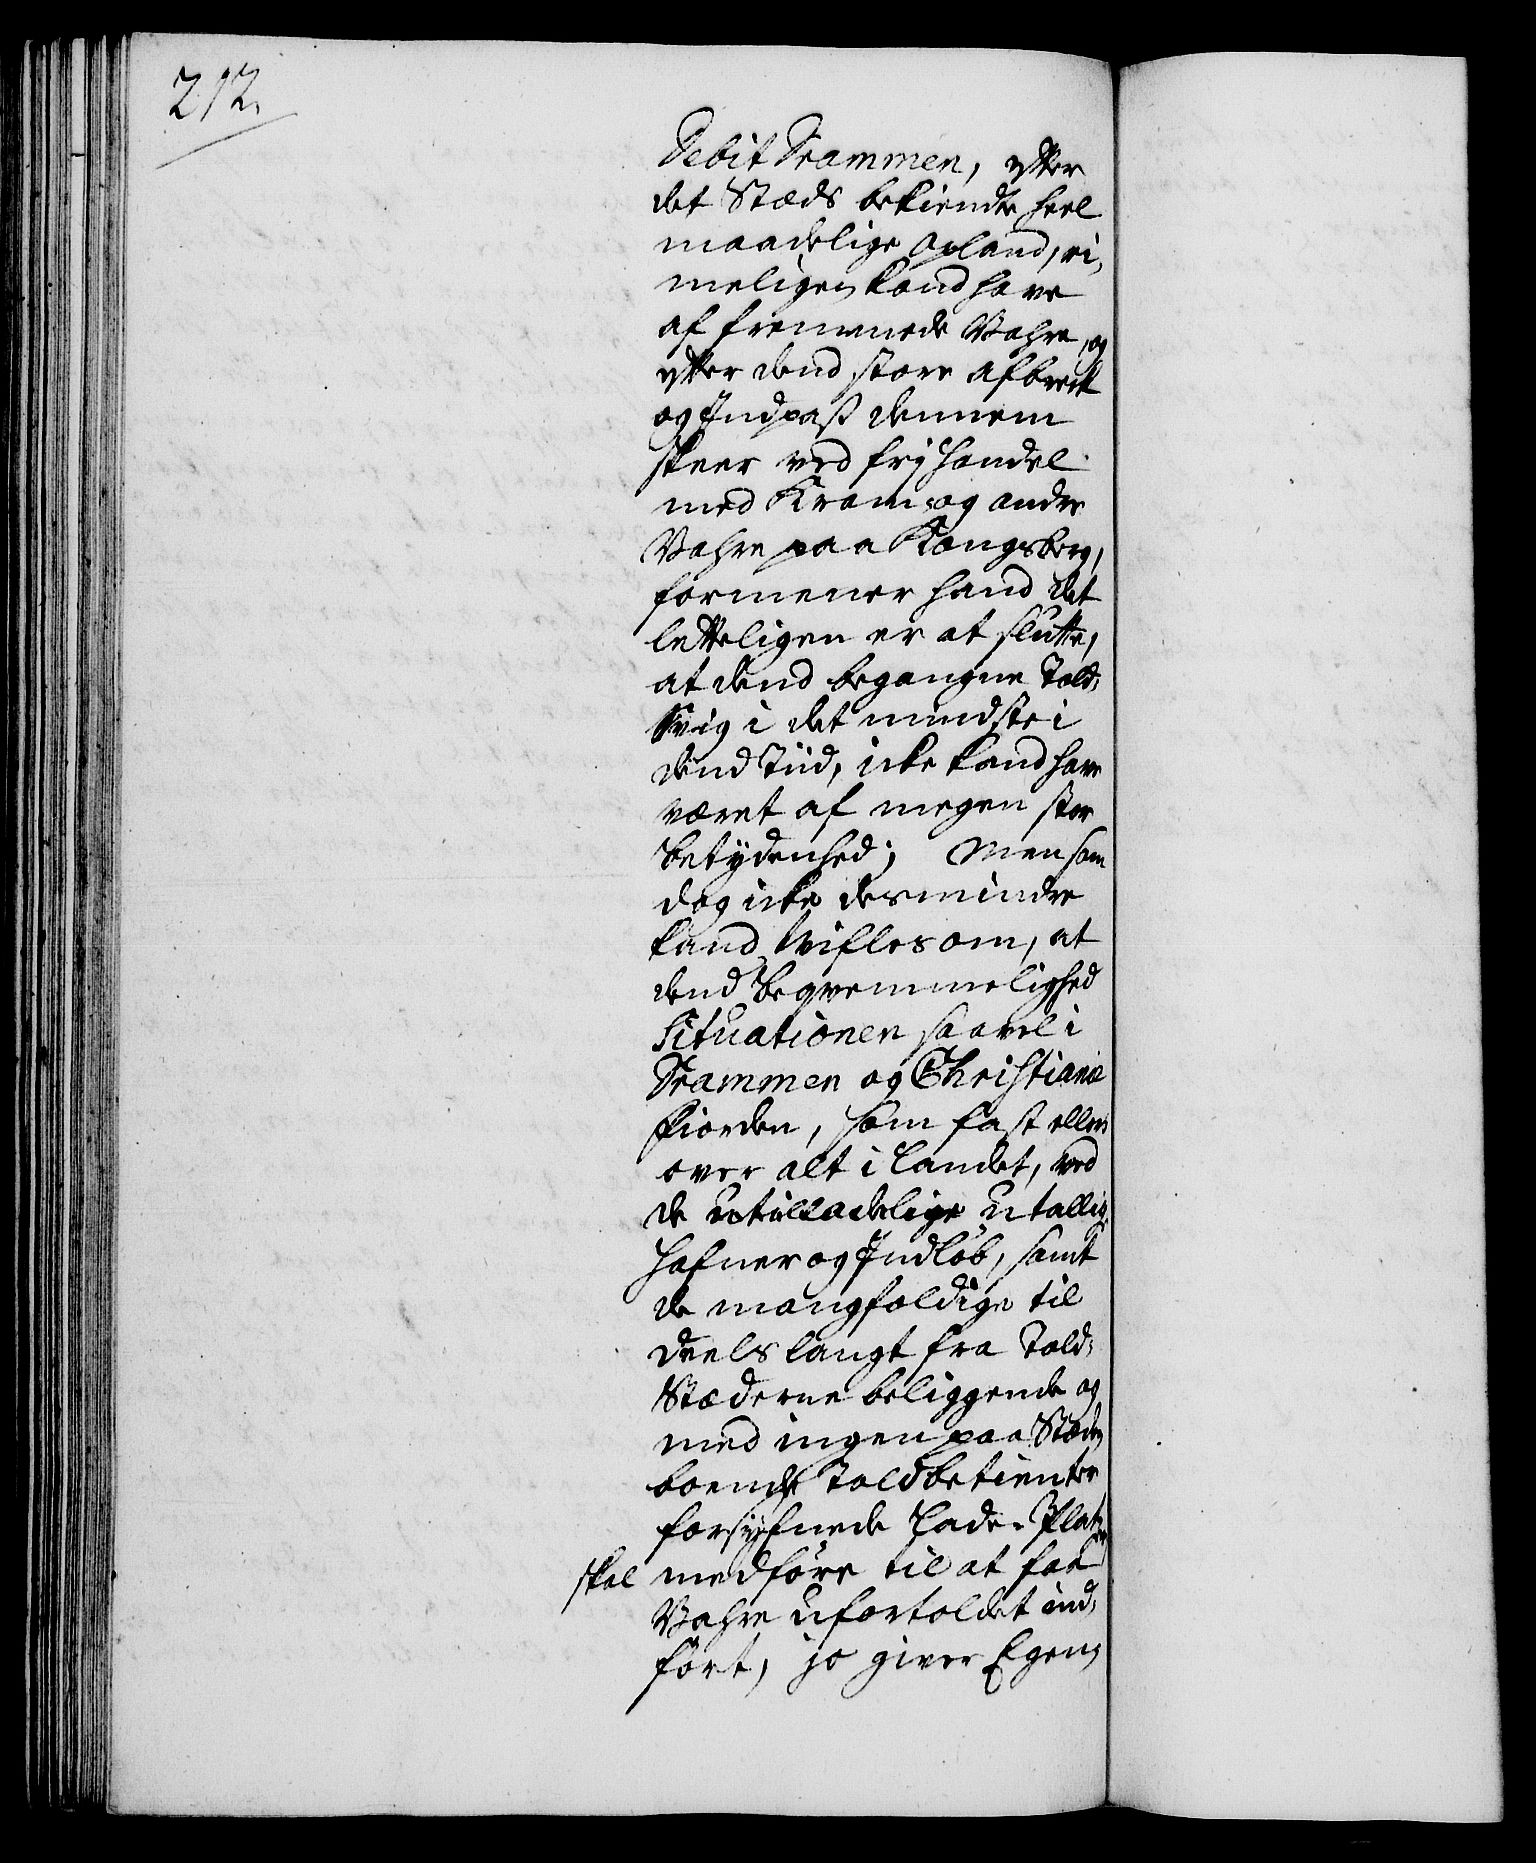 212.
Debit Drammen, efter
det Stæds bekiendte heel
maadelige Opland, ri-
meligen kand have
af fremmede Vahre, og
efter dend store Afbræk
og Indpaß dennem
skeer ved frj Handel
med Kram- og andre
Vahre paa Kongsberg,
formener hand det
letteligen er at slutte,
at dend begangne Told-
Svig i det mindste i
dend Tiid, icke kand have
været af megen stor
betydenhed; Men som
dog icke desmindre
kand tvifles om, at
dend beqvemmelighed
Situationen saavel i
Drammen og Christianiæ
Fiorden, som fast ellers
over alt i Landet, ved
de utilladelige utallige
Hafner og Indløb, samt
de mangfoldige til
deels langt fra Told-
Stæderne beliggende og
med ingen paa Stæden
boende Toldbetienter
forsyfnede Lade-Platzer
skal medføre til at faae
Vahre ufortoldet ind-
ført, jo giver Egen-